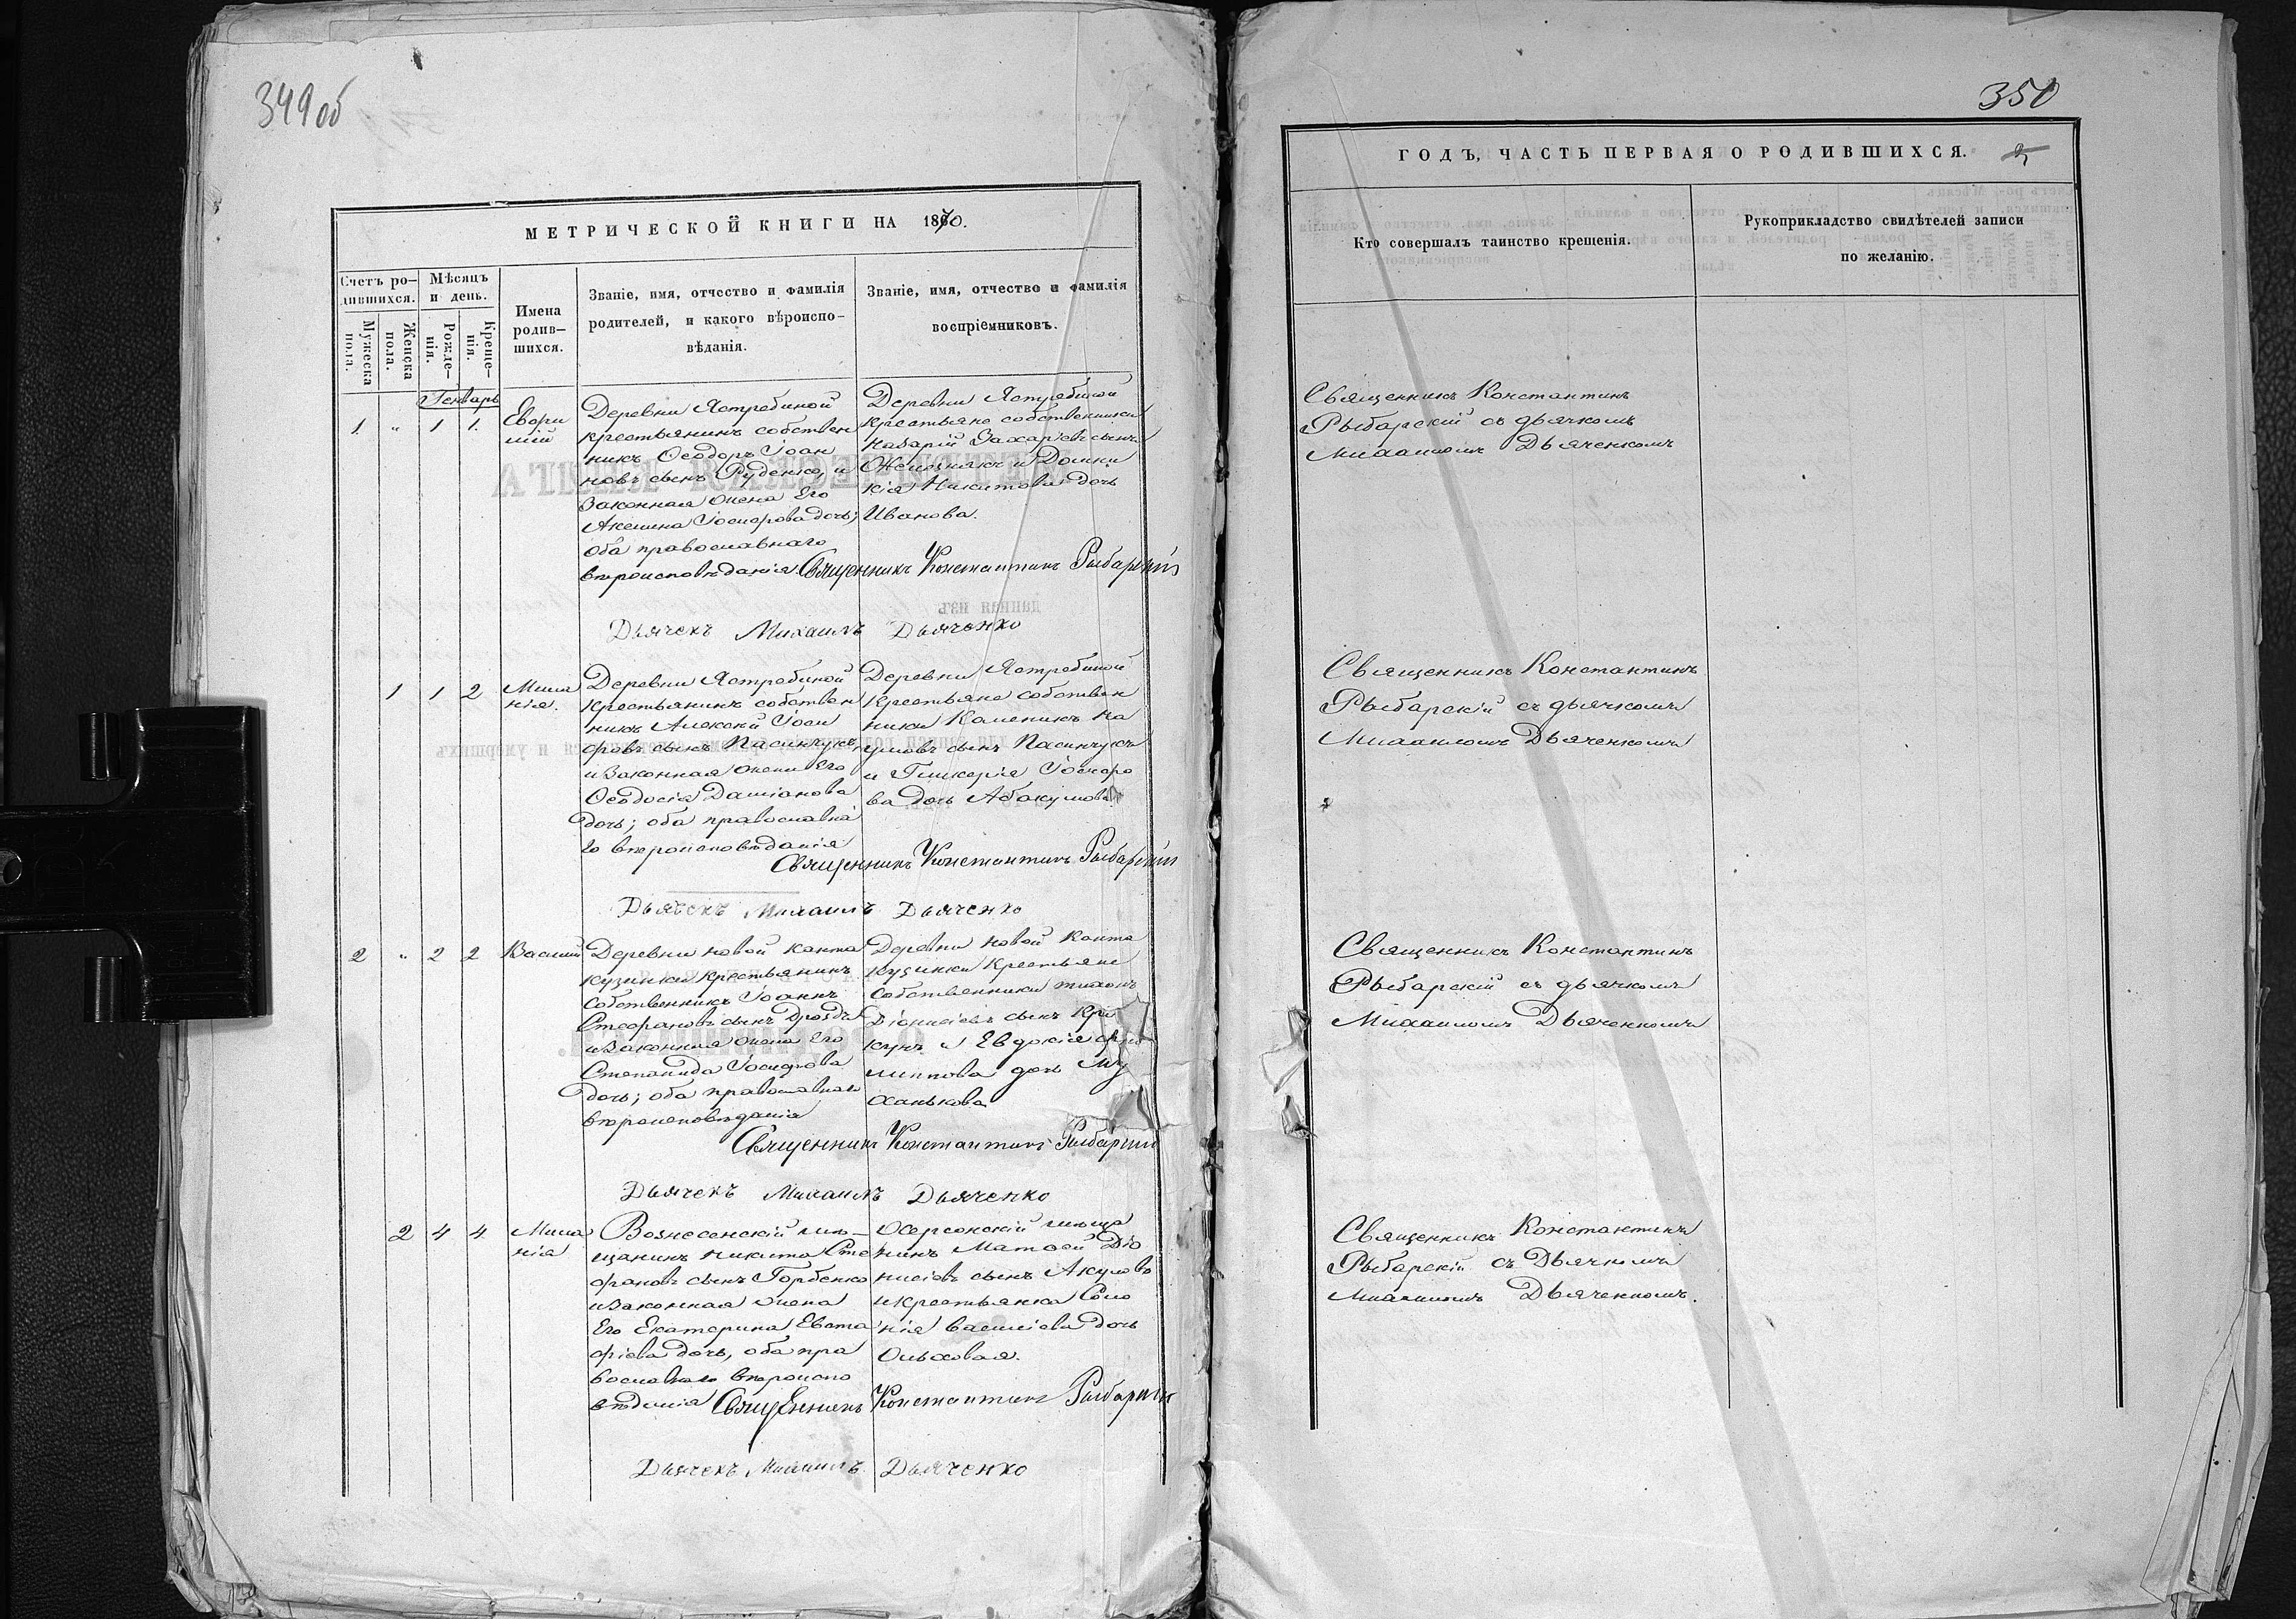 349 об
МЕТРИЧЕСКОЙ КНИГИ НА 1870.
Счетъ ро-
дившихся.
Мужеска пола.
Женска пола.
Мѣсяцъ
и день.
Рожде-
нія.
Креще-
нія.
Имена
родив-
шихся.
Званіе, имя, отчество и фамилія
родителей, и какого вѣроиспо-
вѣданія.
Званіе, имя, отчество и фамилія
воспріемниковъ.
Генварь
1 „ 1 1
Деревни Ястребиной
крестьянинъ собствен
никъ Ѳеодоръ Іоан
новъ сынъ Руденко, и
законная жена его
Акелина Іосифова дочь;
оба православнаго
вѣроисповѣданія.
Деревни Ястребиной
крестьяне собственники
Назарій Захаріевъ сынъ
и Домни
кія Никитова дочь
Иванова.
Священникъ Константинъ Рыбарскій
Дьячекъ Михаилъ Дьяченко
1 1 2
Мила
нія.
Деревни Ястребиной
крестьянинъ собствен
никъ Алексій Іоси
фовъ сынъ Пасинчукъ,
и законная жена его
Ѳеодосія Даміанова
дочь; оба православна
го вѣроисповѣданія
Деревни Ястребиной
крестьяне собствен
ники Каленикъ На
умовъ сынъ Пасинчукъ
и Гликерія Іосифо
ва дочь Абакумова
Священникъ Константинъ Рыбарскій
Дьячекъ Михаилъ Дьяченко
2 „ 2 2
Василій
Деревни Новой Канта
кузинки крестьянинъ
собственникъ Іоаннъ
Стефановъ сынъ Дроздъ
и законная жена его
Степанида Іосифова
дочь; оба православнаго
вѣроисповѣданія
Деревни Новой Канта
кузинки крестьяне
собственники Тихонъ
Діонисіевъ сынъ Кри
кунъ и Евдокія Фи
липпова дочь Му
ханькова
Священникъ Константинъ Рыбарскій
Дьячекъ Михаилъ Дьяченко
2 4 4
Мила
нія
Вознесенскій мѣ-
щанинъ Никита Сте
фановъ сынъ Горбенко
и законная жена
его Екатерина Евста
фіева дочь, оба пра
вославнаго вѣроиспо
вѣданія
Херсонскій мѣща
нинъ Матѳей Діо
нисіевъ сынъ Акуловъ
и крестьянка Соло
нія Василіева дочь
Ольховая.
Священникъ Константинъ Рыбарскій
Дьячекъ Михаилъ Дьяченко
350
ГОДЪ, ЧАСТЬ ПЕРВАЯ О РОДИВШИХСЯ.
Кто совершалъ таинство крещенія.
Рукоприкладство свидѣтелей записи
по желанію.
Священникъ Константинъ
Рыбарскій съ дьячкомъ
Михаиломъ Дьяченкомъ
Священникъ Константинъ
Рыбарскій съ дьячкомъ
Михаиломъ Дьяченкомъ
Священникъ Константинъ
Рыбарскій съ дьячкомъ
Михаиломъ Дьяченкомъ
Священникъ Константинъ
Рыбарскій съ Дьячкомъ
Михаиломъ Дьяченкомъ.